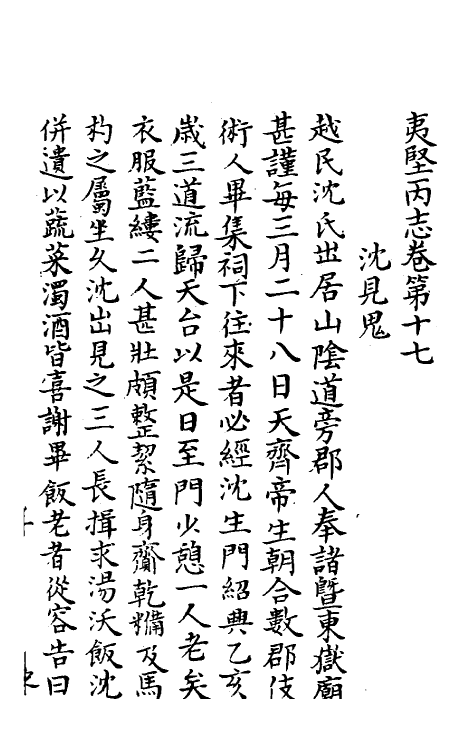 夷堅丙志卷第十七
沈見鬼
越民沈氏世居山陰道旁郡人奉諸暨東嶽廟
甚謹每三月二十八日天齊帝生朝合數郡伎
術人畢集祠下往來者必經沈生門紹興乙亥
歲三道流歸天台以是日至門少憩一人老矣
衣服藍縷二人甚壯頗整絜隨身齎乾糒及馬
杓之屬坐久沈出見之三人長揖求湯沃飯沈
併遺以蔬菜濁酒皆喜謝畢飯老者從容告曰